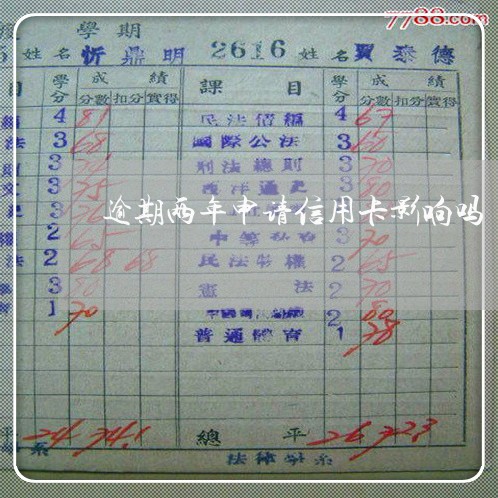 7788.com
學期
姓名 忻鼎明 2616 姓名 賈泰德
目 學分 成績 課目 學分 成績
分數 扣分 實得 分數 扣分 實得
4 81 民法債編 4 67
法 3 68 國際公法 3 60
3 刑法總則 3 70
3 75 西洋通史 3 80
逾期两年申请信用卡影响吗
2 3 70
法 2 68 68 民法物權 2 65
3 80 憲法 2 70
1 70 2 80
普通體育 1 78
平 24 74.1 總平 26 72.3
系 法律學系